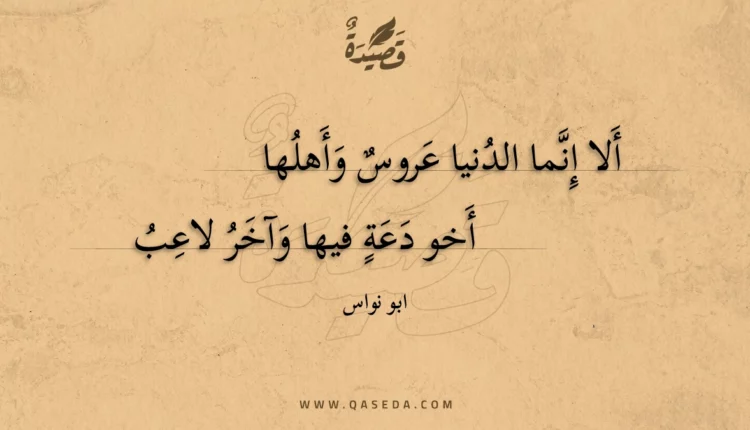 قَصِيْدَةٌ
أَلا إِنَّما الدُنيا عَروسٌ وَأَهلُها
أَخو دَعَةٍ فيها وَآخَرُ لاعِبُ
ابو نواس
WWW.QASEDA.COM